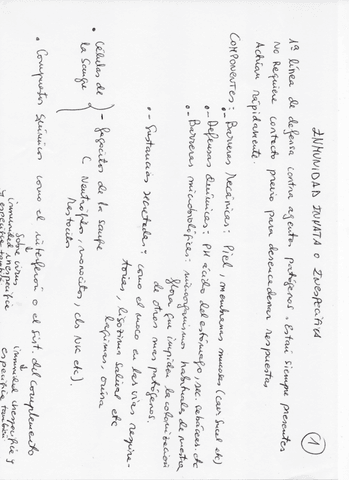 1
INMUNIDAD INNATA O INESPECÍFICA
1ª línea de defensa contra agentes patógenos. Están siempre presentes
No Requiere contacto previo para desencadenar respuestas
Actúan rápidamente.
COMPONENTES: Barreras Mecánicas: Piel, membranas mucosas
- Defensas Químicas: PH ácido del estómago, sec.
- Barreras microbiológicas: microorganismos habituales de nuestra
flora que impiden la colonización
de otros mas patógenos.
- Sustancias secretadas: como el moco en las vías respira-
torias, lisozima salival etc
lágrimas, orina
• Células de la sangre
- fagocitos de la sangre
(Neutrófilos, monocitos, cls NK etc).
• Compuestos químicos como el interferón o el sist. del complemento
sobre virus
inmunidad inespecífica
y específica también
inmunidad inespecífica y
específica también